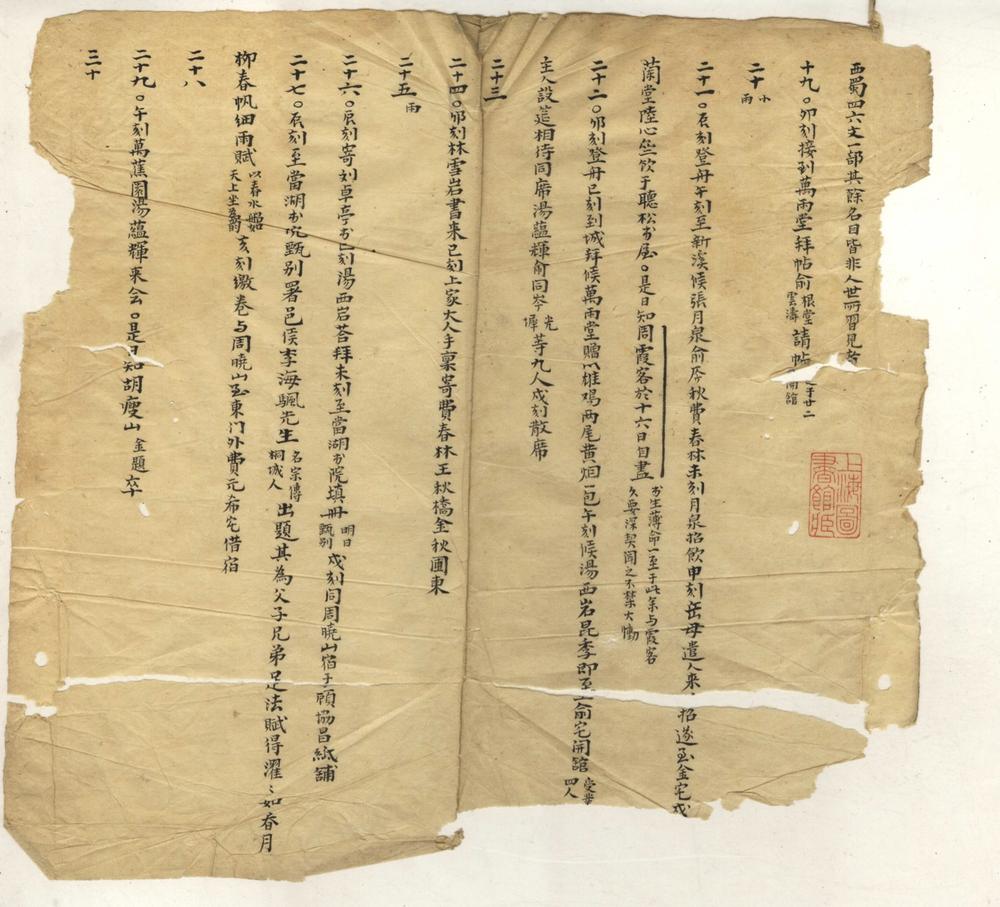 西蜀四六文一部其餘名目皆非人世所習見者
十九。卯刻接到萬雨堂拜帖俞根堂雲濤請帖于廿二開館
二十小雨
二十一。辰刻登舟午刻至新溪候張月泉俞岑秋費春林未刻月泉招飲申刻岳母遣人來招遂至金宅戌
蘭堂陸心竺飲于聽松書屋。是日知周霞客於十六日自盡書生薄命一至于此余与霞客久要深契聞之不禁大慟
二十二。卯刻登舟已刻到城拜候萬雨堂贈以雄鳴兩尾黃烟一包午刻候湯西岩昆季即至俞宅開館受業四人
主人設筵相待同席湯蘊輝俞同岑光墀等九人戌刻散席
二十三
二十四。卯刻林雪岩書來已刻上家大人手稟寄費春林王秋橋金秋圃柬
二十五雨
二十六。辰刻寄刘卓亭書已刻湯西岩荅拜未刻至當湖書院填冊明日甄别戌刻同周曉山宿于顧協昌紙舖
二十七。辰刻至當湖書院甄别署邑侯李海颿先生名宗傳桐城人出題其為父子兄弟足法賦得濯〻如春月
柳春帆细雨賦以春水船如天上坐為韵亥刻繳卷与周曉山至東门外費元希宅借宿
二十八
二十九。午刻萬蕉園湯蘊輝來会。是日知胡瘦山金題卒
三十
上海圖書館藏